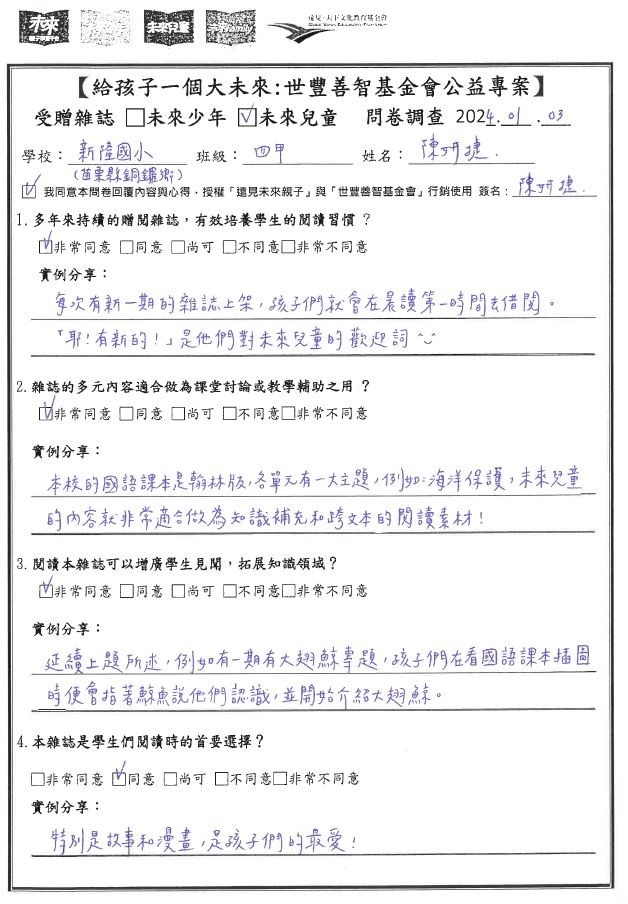 未來
未來兒童
Family
遠見‧天下文化教育基金會
【給孩子一個大未來:世豐善智基金會公益專案】
受贈雜誌 □未來少年 ☑未來兒童 問卷調查 2024.01.03
學校:新隆國小 班級:四甲 姓名:陳妍捷.
(苗栗縣銅鑼鄉)
☑ 我同意本問卷回覆內容與心得,授權「遠見未來親子」與「世豐善智基金會」行銷使用 簽名:陳妍捷.
1.多年來持續的贈閱雜誌,有效培養學生的閱讀習慣?
☑非常同意 □同意 □尚可 □不同意□非常不同意
實例分享:
每次有新一期的雜誌上架,孩子們就會在晨讀第一時間去借閱。
「耶!有新的!」是他們對未來兒童的歡迎詞
2.雜誌的多元內容適合做為課堂討論或教學輔助之用?
☑非常同意 □同意 □尚可 □不同意□非常不同意
實例分享:
本校的國語課本是翰林版,各單元有一大主題,例如:海洋保護,未來兒童
的內容就非常適合做為知識補充和跨文本的閱讀素材!
3.閱讀本雜誌可以增廣學生見聞,拓展知識領域?
☑非常同意 □同意 □尚可 □不同意□非常不同意
實例分享:
延續上題所述,例如有一期有大翅鯨專題,孩子們在看國語課本插圖
時便會指著鯨魚說他們認識,並開始介紹大翅鯨。
4.本雜誌是學生們閱讀時的首要選擇?
□非常同意 ☑同意 □尚可 □不同意□非常不同意
實例分享:
特別是故事和漫畫,是孩子們的最愛!